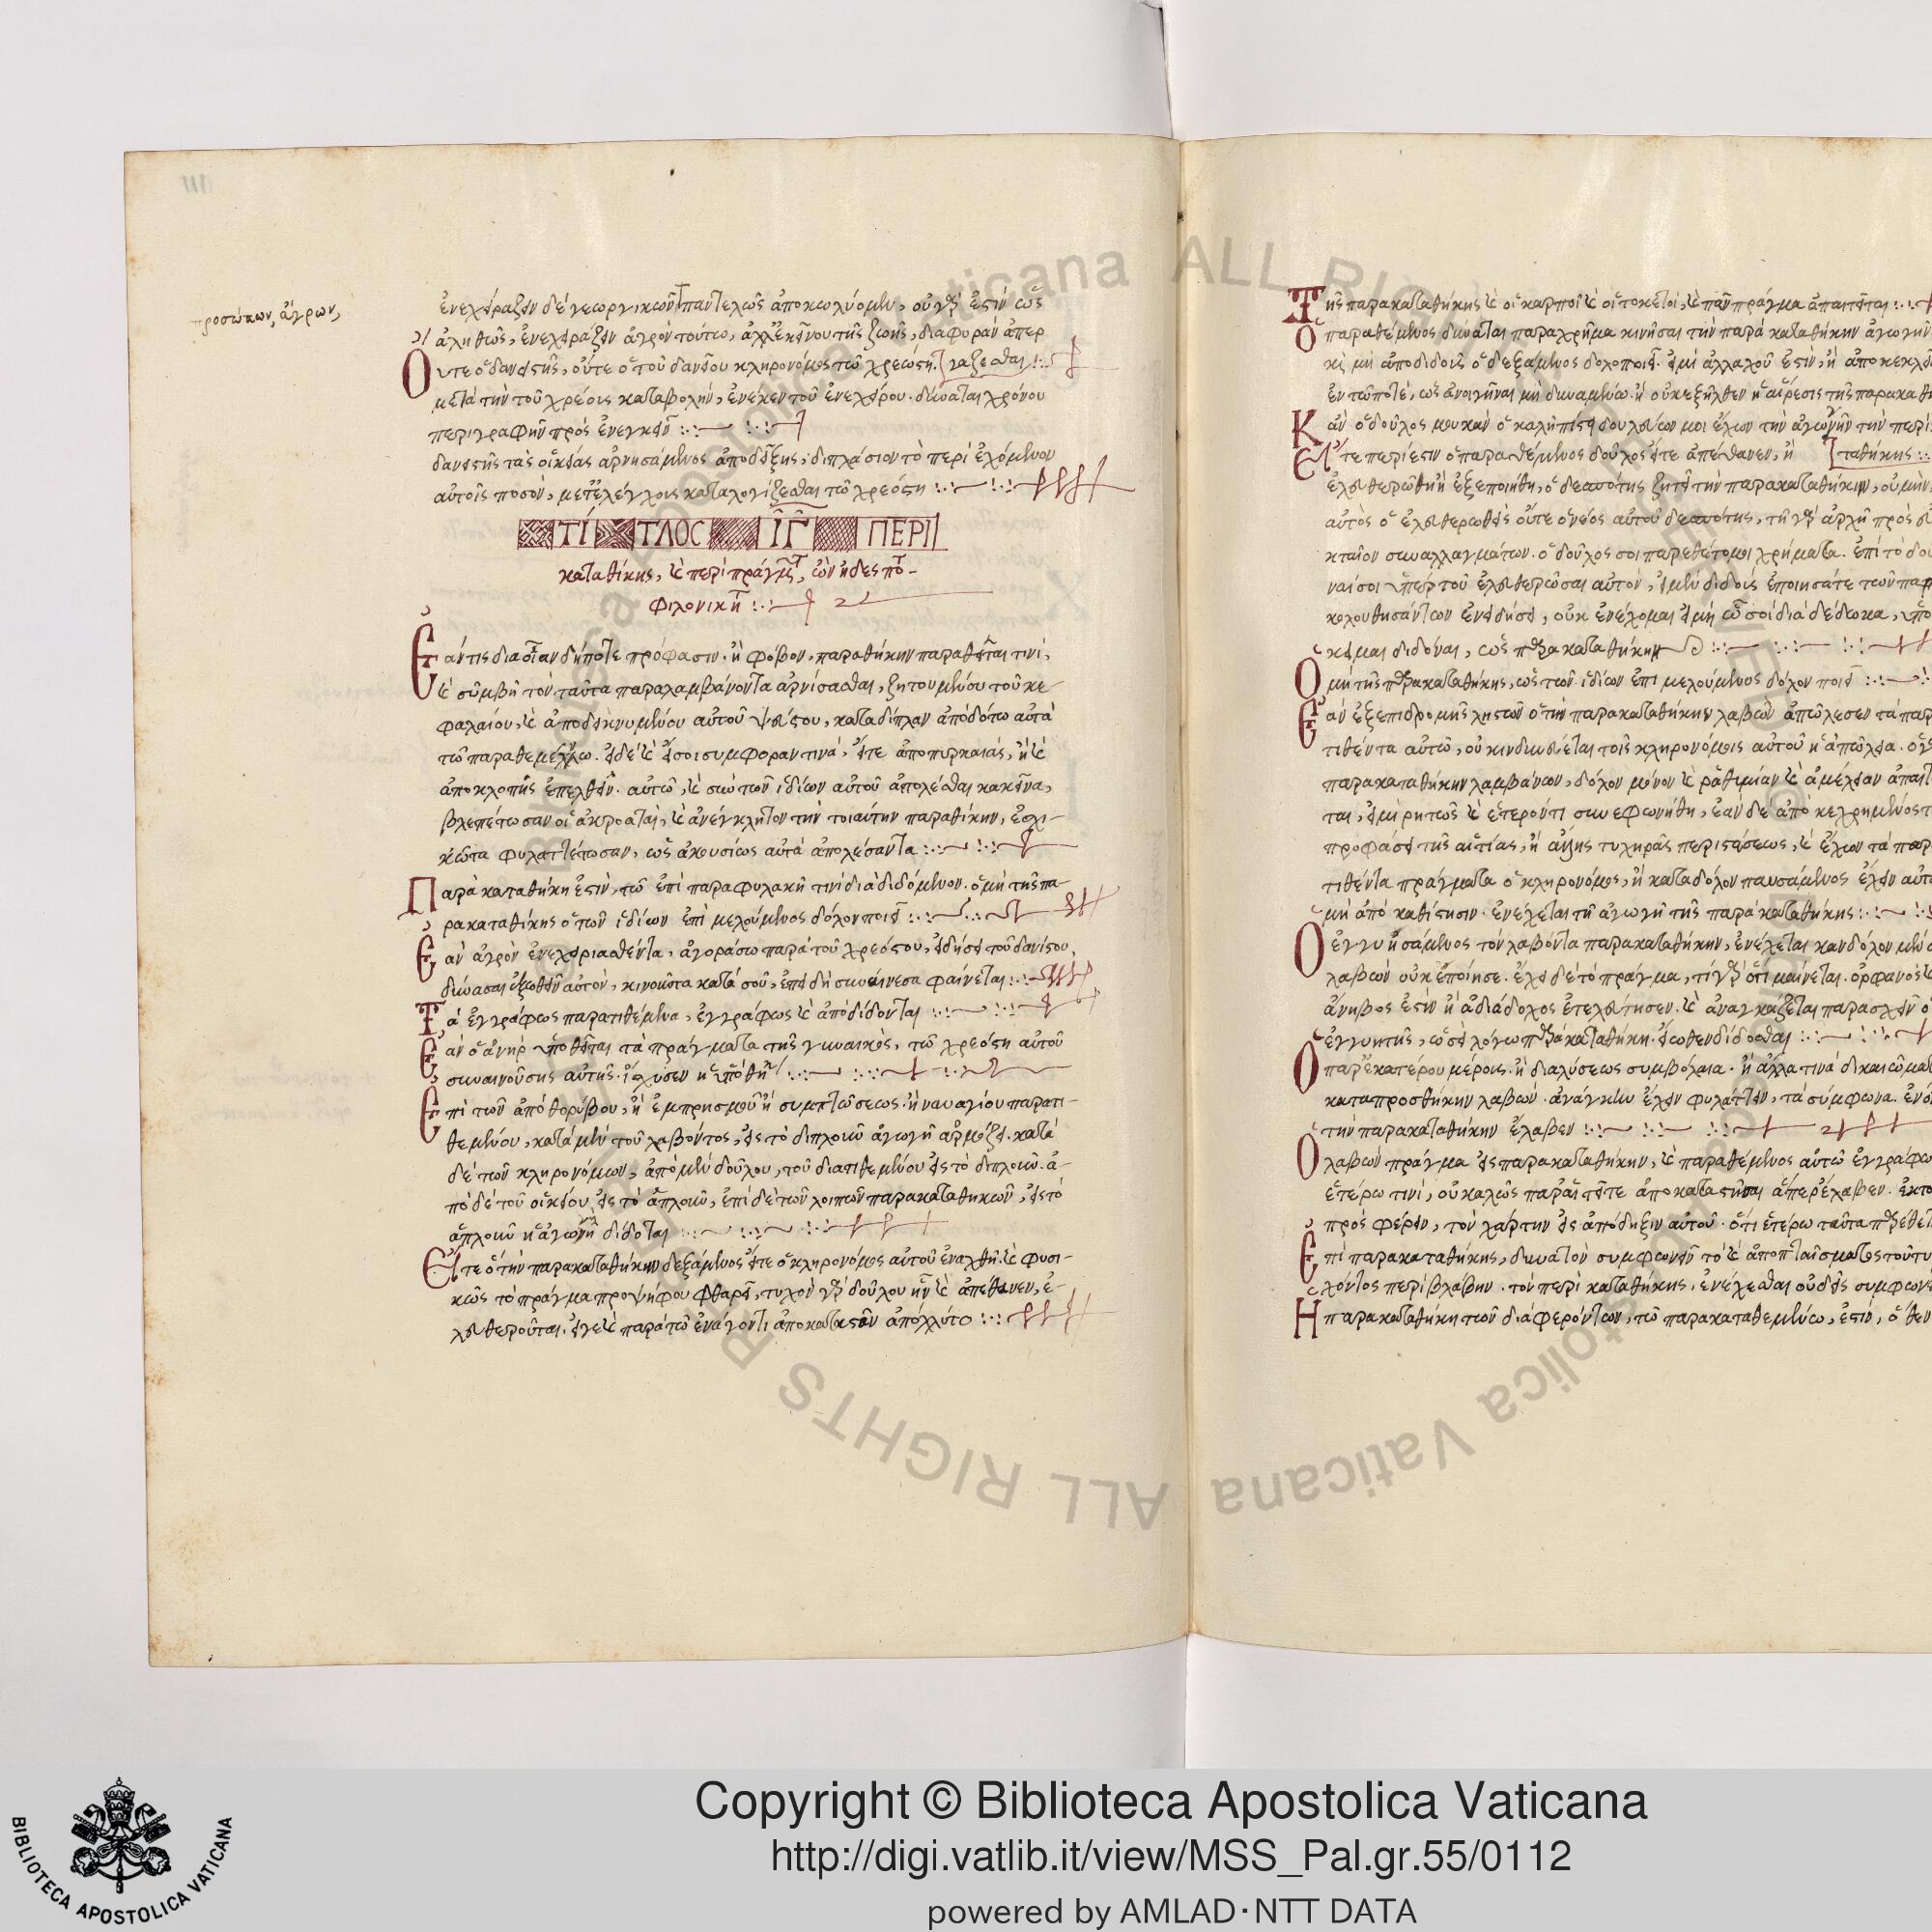 προσώπων, ἀγρῶν,
ἐνεχειράζειν δὲ γεωργικῶν παντελῶς ἀποκωλύομεν, οὐ γὰρ ἐστὶν ὡς
ἀληθῶς, ἐνεχειράζειν ἀγρὸν τούτω, ἀλλ' ἐκείνου τῆς ζωῆς, διαφορὰν ἅπερ
Οὔτε ὁ δανειστὴς, οὔτε ὁ τοῦ δανείου κληρονόμος τῶ χρεώστη
μετὰ τὴν τοῦ χρέους καταβολὴν, ἕνεκεν τοῦ ἐνεχείρου. δύναται χρόνου
περιγραφὴν πρὸς ἐνεγκεῖν
δανειστὴς τὰς οἰκείας ἀρνησάμενος ἀποδείξεις, διπλάσιον τὸ περὶ ἐχόμενον
αὐτοῖς ποσὸν, μετ' ἐλέγχους καταλογίζεσθαι τῶ χρεώστη
ΤΙΤΛΟΣ ΙΓ ΠΕΡΙ
καταθήκης, καὶ περὶ πραγμάτ, ὧν ἡ δεσποτ
φιλονικεῖτ
Ἐάν τις δι' οἵαν δήποτε πρόφασιν. ἢ φόβον, παραθήκην παραθεῖται τινὶ,
καὶ συμβῆ τὸν ταῦτα παραλαμβάνοντα ἀρνίσασθαι, ζητουμένου τοῦ κε
φαλαίου, καὶ ἀποδεικνυμένου αὐτοῦ ψεύστου, κατὰ δίπλαν ἀποδότω αὐτὰ
τῶ παραθεμένω. εἰ δὲ καὶ εἴσοι συμφοραν τινὰ, εἴτε ἀπὸ πυρκαιάς, ἢ καὶ
ἀπὸ κλοπῆς ἐπελθεῖν. αὐτῶ, καὶ σὺν τῶν ἰδίων αὐτοῦ ἀπολέσθαι κακεῖνα,
βλεπέτωσαν οἱ ἀκροαταὶ, καὶ ἀνέγκλητον τὴν τοιαύτην παραθήκην, ἐσχι
κῶτα φυλαττέτωσαν, ὡς ἀκουσίως αὐτὰ ἀπολέσαντα
Παρὰ καταθήκη ἐστὶν, τῶ ἐπὶ παραφυλακῆ τινὶ διὰ διδόμενον. ὁ μὴ τῆς πα
ρακαταθήκης ὁ τῶν ἰδίων ἐπὶ μελούμενος δόλον ποιεῖ
Ἐὰν ἀγρὸν ἐνεχειριασθέντα, ἀγοράσω παρὰ τοῦ χρεόστου, εἰδήσει τοῦ δανίστου,
δύνασαι ἐξωθεῖν αὐτὸν, κινοῦντα κατά σου, ἐπειδὴ συναίνεσα φαίνεται
Τὰ ἐγγράφως παρατιθέμενα, ἐγγράφως καὶ ἀποδίδονται
Ἐὰν ὁ ἀνὴρ ὑποθεῖται τὰ πράγματα τῆς γυναικὸς, τῶ χρεόστη αὐτοῦ
συναινούσης αὐτῆς. ἴσχυσεν ἡ ὑποθήκ
Ἐπὶ τῶν ἀπὸ θορύβου, ἢ ἐμπρησμοῦ ἢ συμπτώσεως. ἢ ναυαγίου παρατι
θεμένου, κατὰ μὲν τοῦ λαβόντος, εἰς τὸ διπλοῦν ἀγωγὴ ἁρμόζει. κατὰ
δὲ τῶν κληρονόμων, ἀπὸ μὲν δούλου, τοῦ διατιθεμένου εἰς τὸ διπλοῦν. ἀ
πὸ δὲ τοῦ οἰκείου, εἰς τὸ ἁπλοῦν, ἐπὶ δὲ τῶν λοιπῶν παρακαταθηκῶν, εἰς τὸ
ἁπλοῦν ἡ ἀγωγὴ δίδοται
Εἴτε ὁ τὴν παρακαταθήκην δεξάμενος εἴτε ὁ κληρονόμος αὐτοῦ ἐναχθῆ. καὶ φυσι
κῶς τὸ πράγμα προ ψήφου φθαρεῖ, τυχὸν γὰρ δούλου ἦν καὶ ἀπέθανεν, ἐ
λευθεροῦται. εἴγε καὶ παρὰ τῶ ἐνάγοντι ἀποκαταστὰν ἀπόλλυτο
Τῆς παρακαταθήκης καὶ οἱ καρποὶ καὶ οἱ τοκετοὶ, καὶ πᾶν πράγμα ἀπαιτεῖται
Ὁ παραθέμενος δύναται παραχρῆμα κινῆσαι τὴν παρὰ καταθήκην ἀγωγὴν
κὶ μὴ ἀποδιδοὺς ὁ δεξάμενος δολοποιεῖ. εἰ μὴ ἀλλαχοῦ ἐστὶν, ἢ ἀποκεκλει
ἐν τῶ ποτὲ, ὡς ἀνοιγῆναι μὴ δυναμένω. ἢ οὐκ ἐξῆλθεν ἡ αἵρεσις τῆς παρακαθ
Κἀν ὁ δοῦλος μου κἀν ὁ καλῆ πίστει δουλεύων μοι ἔχων τὴν ἀγωγὴν τὴν περὶ
Εἴτε περίεστιν ὁ παραθέμενος δοῦλος εἴτε ἀπέθανεν, ἢ [ταθήκης
ἐλευθερώθη ἢ ἐξεποιήθη, ὁ δεσπότης ζητεῖ τὴν παρακαταθήκην, οὐ μὴν
αὐτὸς ὁ ἐλευθερωθεὶς οὔτε ὁ νέος αὐτοῦ δεσπότης, τῆ γὰρ ἀρχῆ πρὸς
κταῖον συναλλαγμάτων. ὁ δοῦλός σοι παρεθέτο μοι χρήματα. ἐπὶ τὸ δου
ναί σοι ὑπὲρ τοῦ ἐλευθερῶσαι αὐτὸν,
κολουθησάντων ἐν εἰδήσει, οὐκ ἐνέχομαι εἰ μὴ ὧ σοὶ διαδέδωκα, ὑπο
κειμαι διδόναι, ὡς παρακαταθήκην
Ὁ μὴ τῆς παρακαταθήκης, ὡς τῶν ἰδίων ἐπιμελούμενος δόλον ποιεῖ
Ἐὰν ἐξ ἐπιδρομῆς ληστῶν ὁ τὴν παρακαταθήκην λαβὼν ἀπώλεσεν τὰ παρ
τιθέντα αὐτῶ, οὐ κινδυνεύεται τοῖς κληρονόμοις αὐτοῦ ἡ ἀπώλεια.
παρακαταθήκην λαμβάνων, δόλον μόνον καὶ ῥαθιμίαν καὶ ἀμέλειαν ἀπαιτ
ται, εἰ μὴ ῥητῶς καὶ ἕτερόν τι συνεφωνήθη, ἐὰν δὲ ἀπὸ κεχρημένος τ
προφάσει τῆς αἰτίας, ἢ ἄλλης τυχηρᾶς περιστάσεως, καὶ ἔχων τὰ παρ
τιθέντα πράγματα ὁ κληρονόμος, ἢ κατὰ δόλον παυσάμενος ἔχειν αὐτ
μὴ ἀπὸ καθίστησιν. ἐνέχεται τῆ ἀγωγῆ τῆς παρὰ καταθήκης
Ὁ ἐγγυησάμενος τὸν λαβόντα παρακαταθήκην, ἐνέχεται κἂν δόλον μὲν
λαβὼν οὐκ ἐποίησε. ἔχει δὲ τὸ πράγμα, τί γὰρ ὅτι μαίνεται. ὀρφανὸς
ἄνηβος ἐστιν ἢ ἀδιάδοχος ἐτελεύτησεν. καὶ ἀναγκάζεται παρασχεῖν
ἐγγυητὴς,
Ὁ παρ' ἑκατέρου μέρους. ἢ διαλύσεως συμβόλαια. ἢ ἄλλα τινὰ δικαιώματ
κατὰ προσθήκην λαβὼν. ἀνάγκην ἔχειν φυλάττειν, τὰ σύμφωνα.
τὴν παρακαταθήκην ἔλαβεν
Ὁ λαβὼν πράγμα εἰς παρακαταθήκην, καὶ παραθέμενος αὐτῶ ἐγγράφω
ἑτέρω τινὶ, οὐ καλῶς παραιτεῖτε ἀποκαταστῆσαι ἅπερ ἔλαβεν.
πρὸς φέρειν, τὸν χάρτην εἰς ἀπόδηξιν αὐτοῦ. ὅτι ἑτέρω ταῦτα παρέθετ
Ἐπὶ παρακαταθήκης, δυνατὸν συμφωνεῖν τὸ καὶ ἀπὸ πταίσματος
χόντος περὶ βλάβην. τὸν περὶ καταθήκης, ἐνέχεσθαι οὐδεὶς συμφων
Ἡ παρακαταθήκη τῶν διαφερόντων, τῶ παρακαταθεμένω, ἐστὶν, ὅθεν
Copyright © Biblioteca Apostolica Vaticana
http://digi.vatlib.it/view/MSS_Pal.gr.55/0112
powered by AMLAD·NTT DATA
BIBLIOTECA APOSTOLICA VATICANA